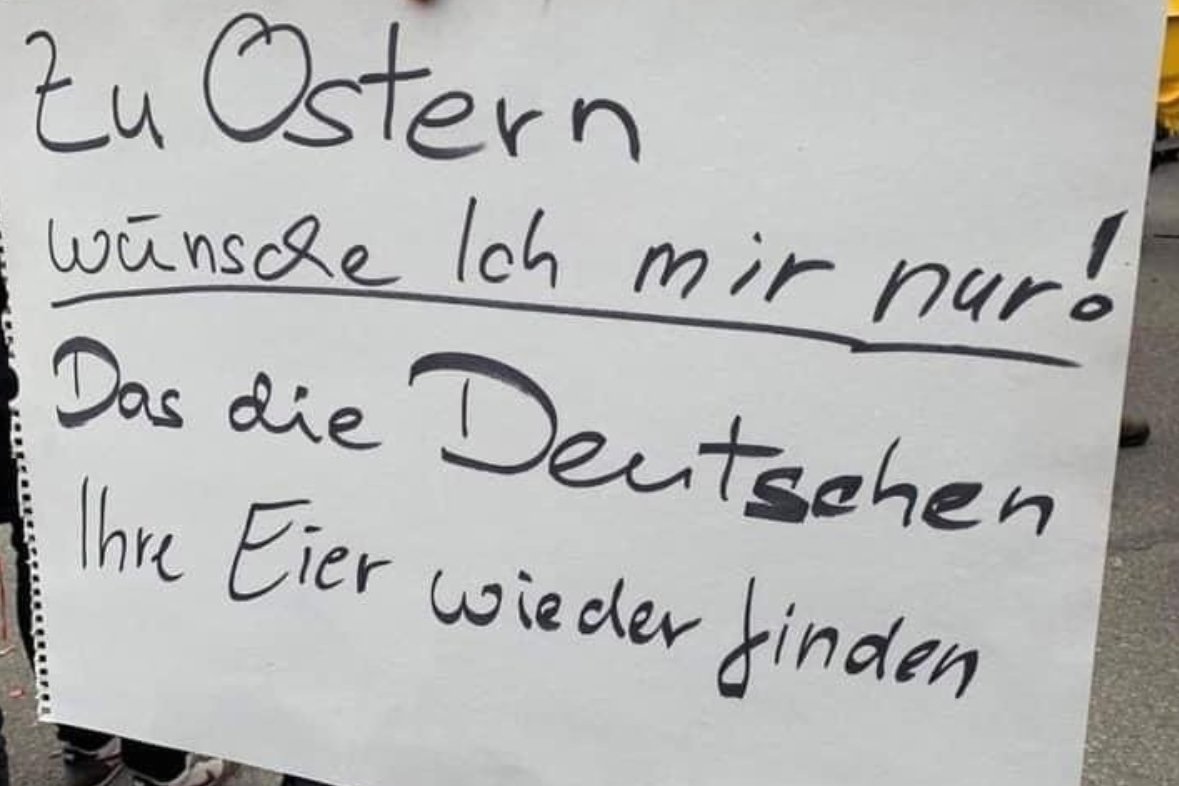 Zu Ostern
wünsche Ich mir nur!
Das die Deutschen
Ihre Eier wieder finden